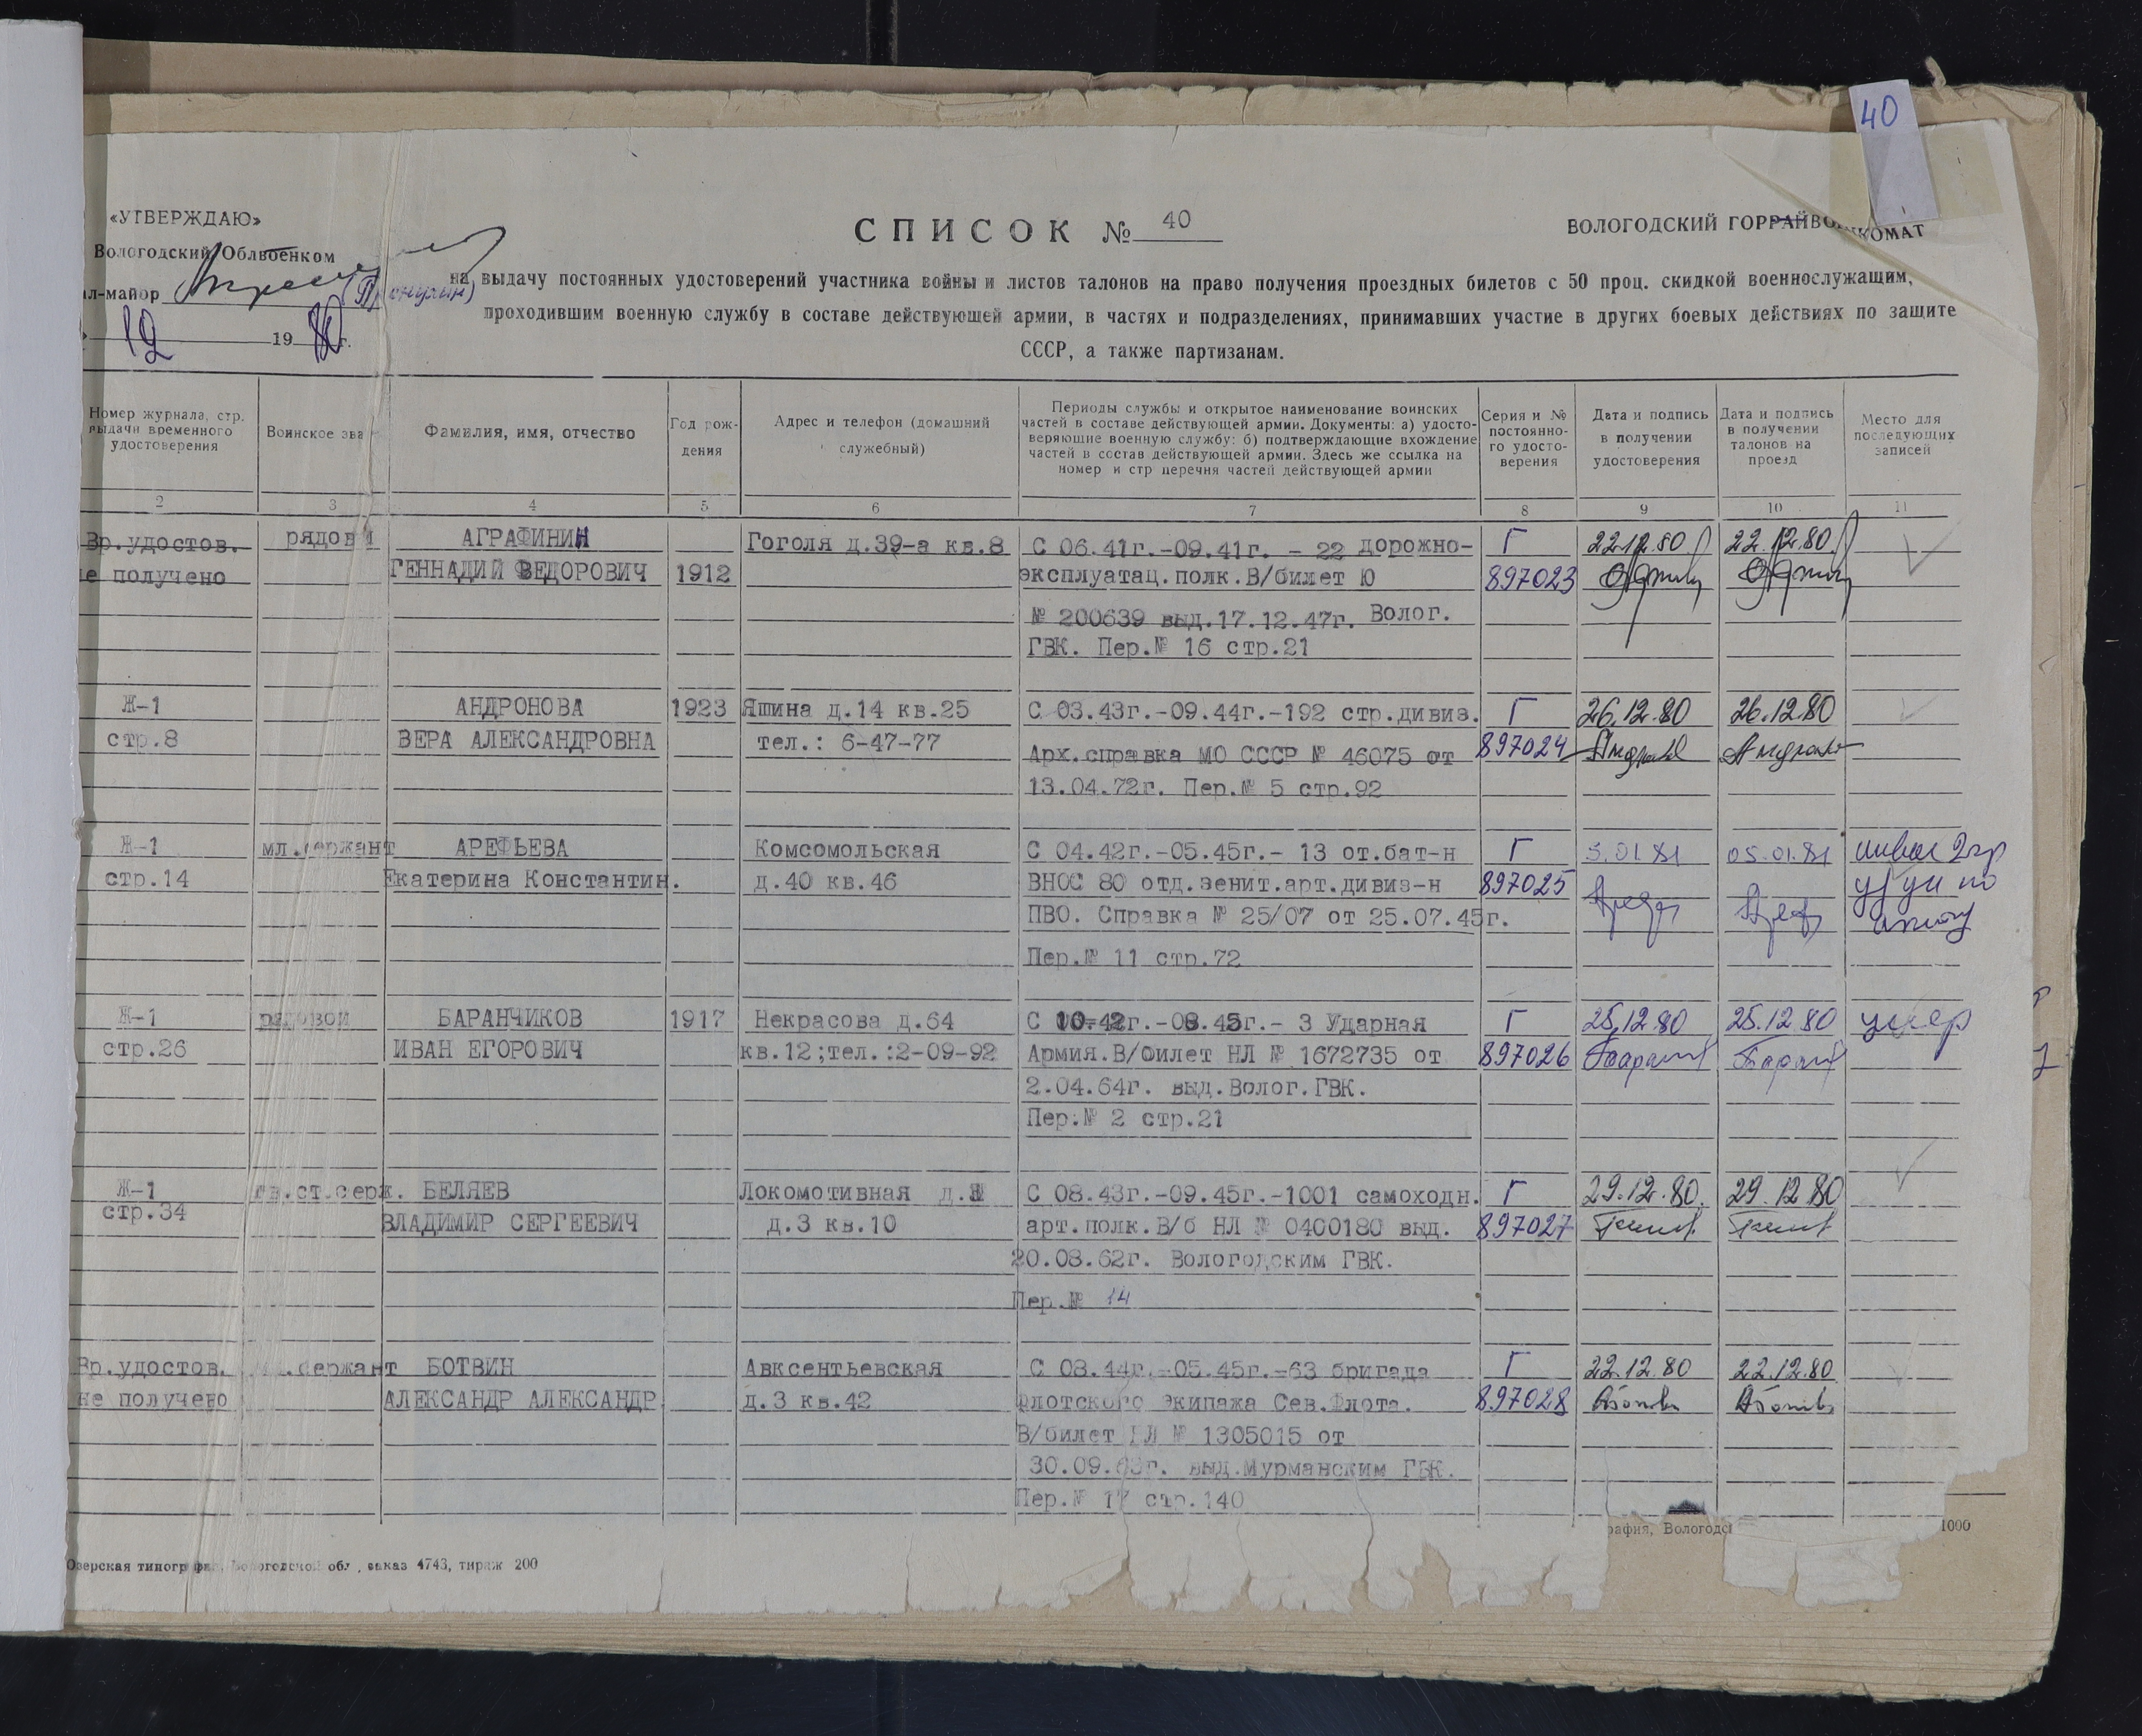 40
«УТВЕРЖДАЮ»
Вологодский Облвоенком
ал-майор
12 1980 г.
СПИСОК № 40
ВОЛОГОДСКИЙ ГОРРАЙВОЕНКОМАТ
на выдачу постоянных удостоверений участника войны и листов талонов на право получения проездных билетов с 50 проц. скидкой военнослужащим,
проходившим военную службу в составе действующей армии, в частях и подразделениях, принимавших участие в других боевых действиях по защите
СССР, а также партизанам.
Номер журнала, стр.
выдачи временного
удостоверения
Воинское зва
Фамилия, имя, отчество
Год рож-
дения
Адрес и телефон (домашний
служебный)
Периоды службы и открытое наименование воинских
частей в составе действующей армии. Документы: а) удосто-
веряющие военную службу: б) подтверждающие вхождение
частей в состав действующей армии. Здесь же ссылка на
номер и стр перечня частей действующей армии
Серия и №
постоянно-
го удосто-
верения
Дата и подпись
в получении
удостоверения
Дата и подпись
в получении
талонов на
проезд
Место для
последующих
записей
2 3 4 5 6 7 8 9 10 11
Вр.удостов. рядовй АГРАФИНИН Гоголя д.39-а кв.8 С 06.41г.-09.41г. - 22 дорожно- Г 22.12.80 22.12.80
не получено ГЕННАДИЙ ФЕДОРОВИЧ 1912 эксплуатац.полк.В/билет Ю 897023
№ 200639 выд.17.12.47г. Волог.
ГВК. Пер.№ 16 стр.21
Ж-1 АНДРОНОВА 1923 Яшина д.14 кв.25 С 03.43г.-09.44г.-192 стр.дивиз. Г 26.12.80 26.12.80
стр.8 ВЕРА АЛЕКСАНДРОВНА тел.: 6-47-77 Арх.справка МО СССР № 46075 от 897024
13.04.72г. Пер.№ 5 стр.92
Ж-1 мл.сержант АРЕФЬЕВА Комсомольская С 04.42г.-05.45г.- 13 от.бат-н Г 5.01.81 05.01.81
стр.14 Екатерина Константин. д.40 кв.46 ВНОС 80 отд.зенит.арт.дивиз-н 897025
ПВО. Справка № 25/07 от 25.07.45г.
Пер.№ 11 стр.72
Ж-1 рядовой БАРАНЧИКОВ 1917 Некрасова д.64 С 10.42г.-08.45г.- 3 Ударная Г 25.12.80 25.12.80 умер
стр.26 ИВАН ЕГОРОВИЧ кв.12;тел.:2-09-92 Армия.В/билет НЛ № 1672735 от 897026
2.04.64г. выд.Волог.ГВК.
Пер.№ 2 стр.21
Ж-1 гв.ст.серж. БЕЛЯЕВ Локомотивная д. С 08.43г.-09.45г.-1001 самоходн. Г 29.12.80. 29.12.80
стр.34 ВЛАДИМИР СЕРГЕЕВИЧ д.3 кв.10 арт.полк.В/б НЛ № 0400180 выд. 897027
20.08.62г. Вологодским ГВК.
Пер.№ 14
Вр.удостов. .сержант БОТВИН Авксентьевская С 08.44г.-05.45г.-63 бригада Г 22.12.80 22.12.80
не получено АЛЕКСАНДР АЛЕКСАНДР. д.3 кв.42 Флотского экипажа Сев.Флота. 897028
В/билет НЛ № 1305015 от
30.09.63г. выд.Мурманским ГВК.
Пер.№ 17 стр.140
рафия, Вологодс 1000
Озерская типография, Вологодской обл., заказ 4743, тираж 200